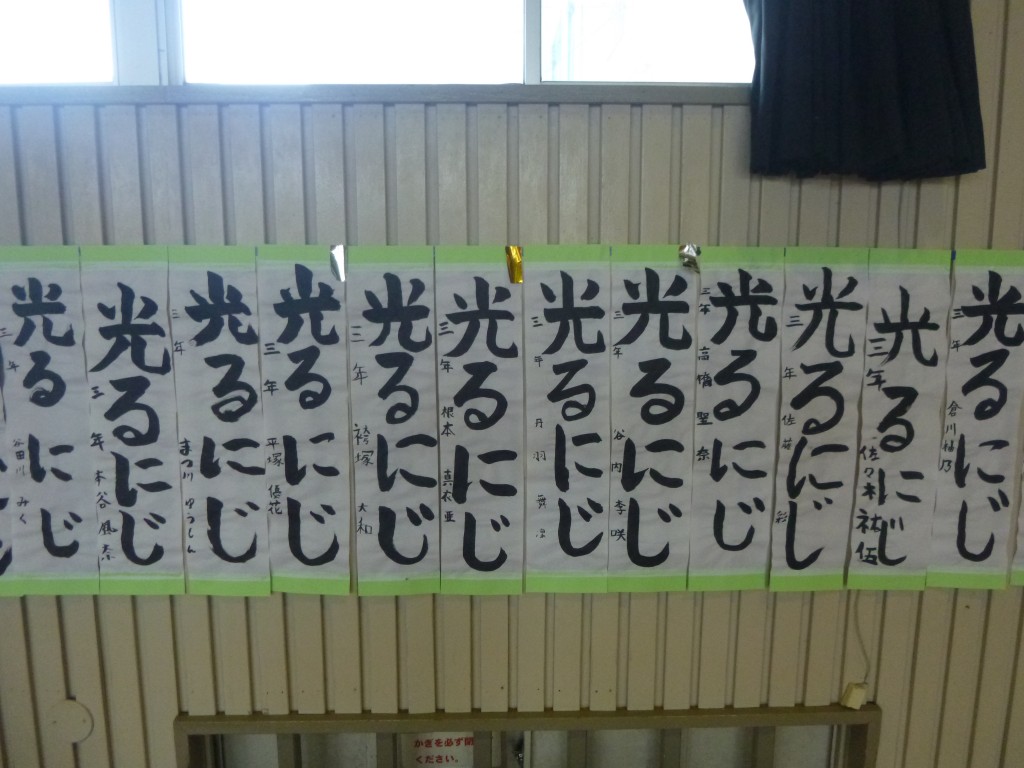 光るにじ
三年
谷田川 みく
光るにじ
三年
本谷 颯泰
光るにじ
三年
まつ川 ゆうしん
光るにじ
三年
平塚 優花
光るにじ
三年
袴塚 大和
光るにじ
三年
根本 真衣亜
光るにじ
三年
丹羽
光るにじ
三年
谷内 李咲
光るにじ
三年
高橋 堅奈
光るにじ
三年
佐藤 彩
光るにじ
三年
佐々木 祐伍
光るにじ
三年
倉川 柚乃
かぎを必ず閉
ください。